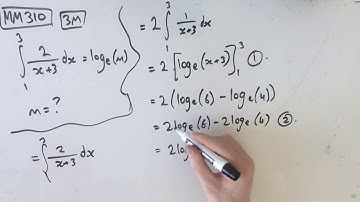 MM310 3M
∫₁³ 2/(x+3) dx = logₑ(m)
m = ?
= ∫³ 2/(x+3) dx
= 2 ∫₁³ 1/(x+3) dx
= 2 [logₑ(x+3)]₁³ ①.
= 2(logₑ(6) - logₑ(4))
= 2logₑ(6) - 2logₑ(4) ②.
= 2lo